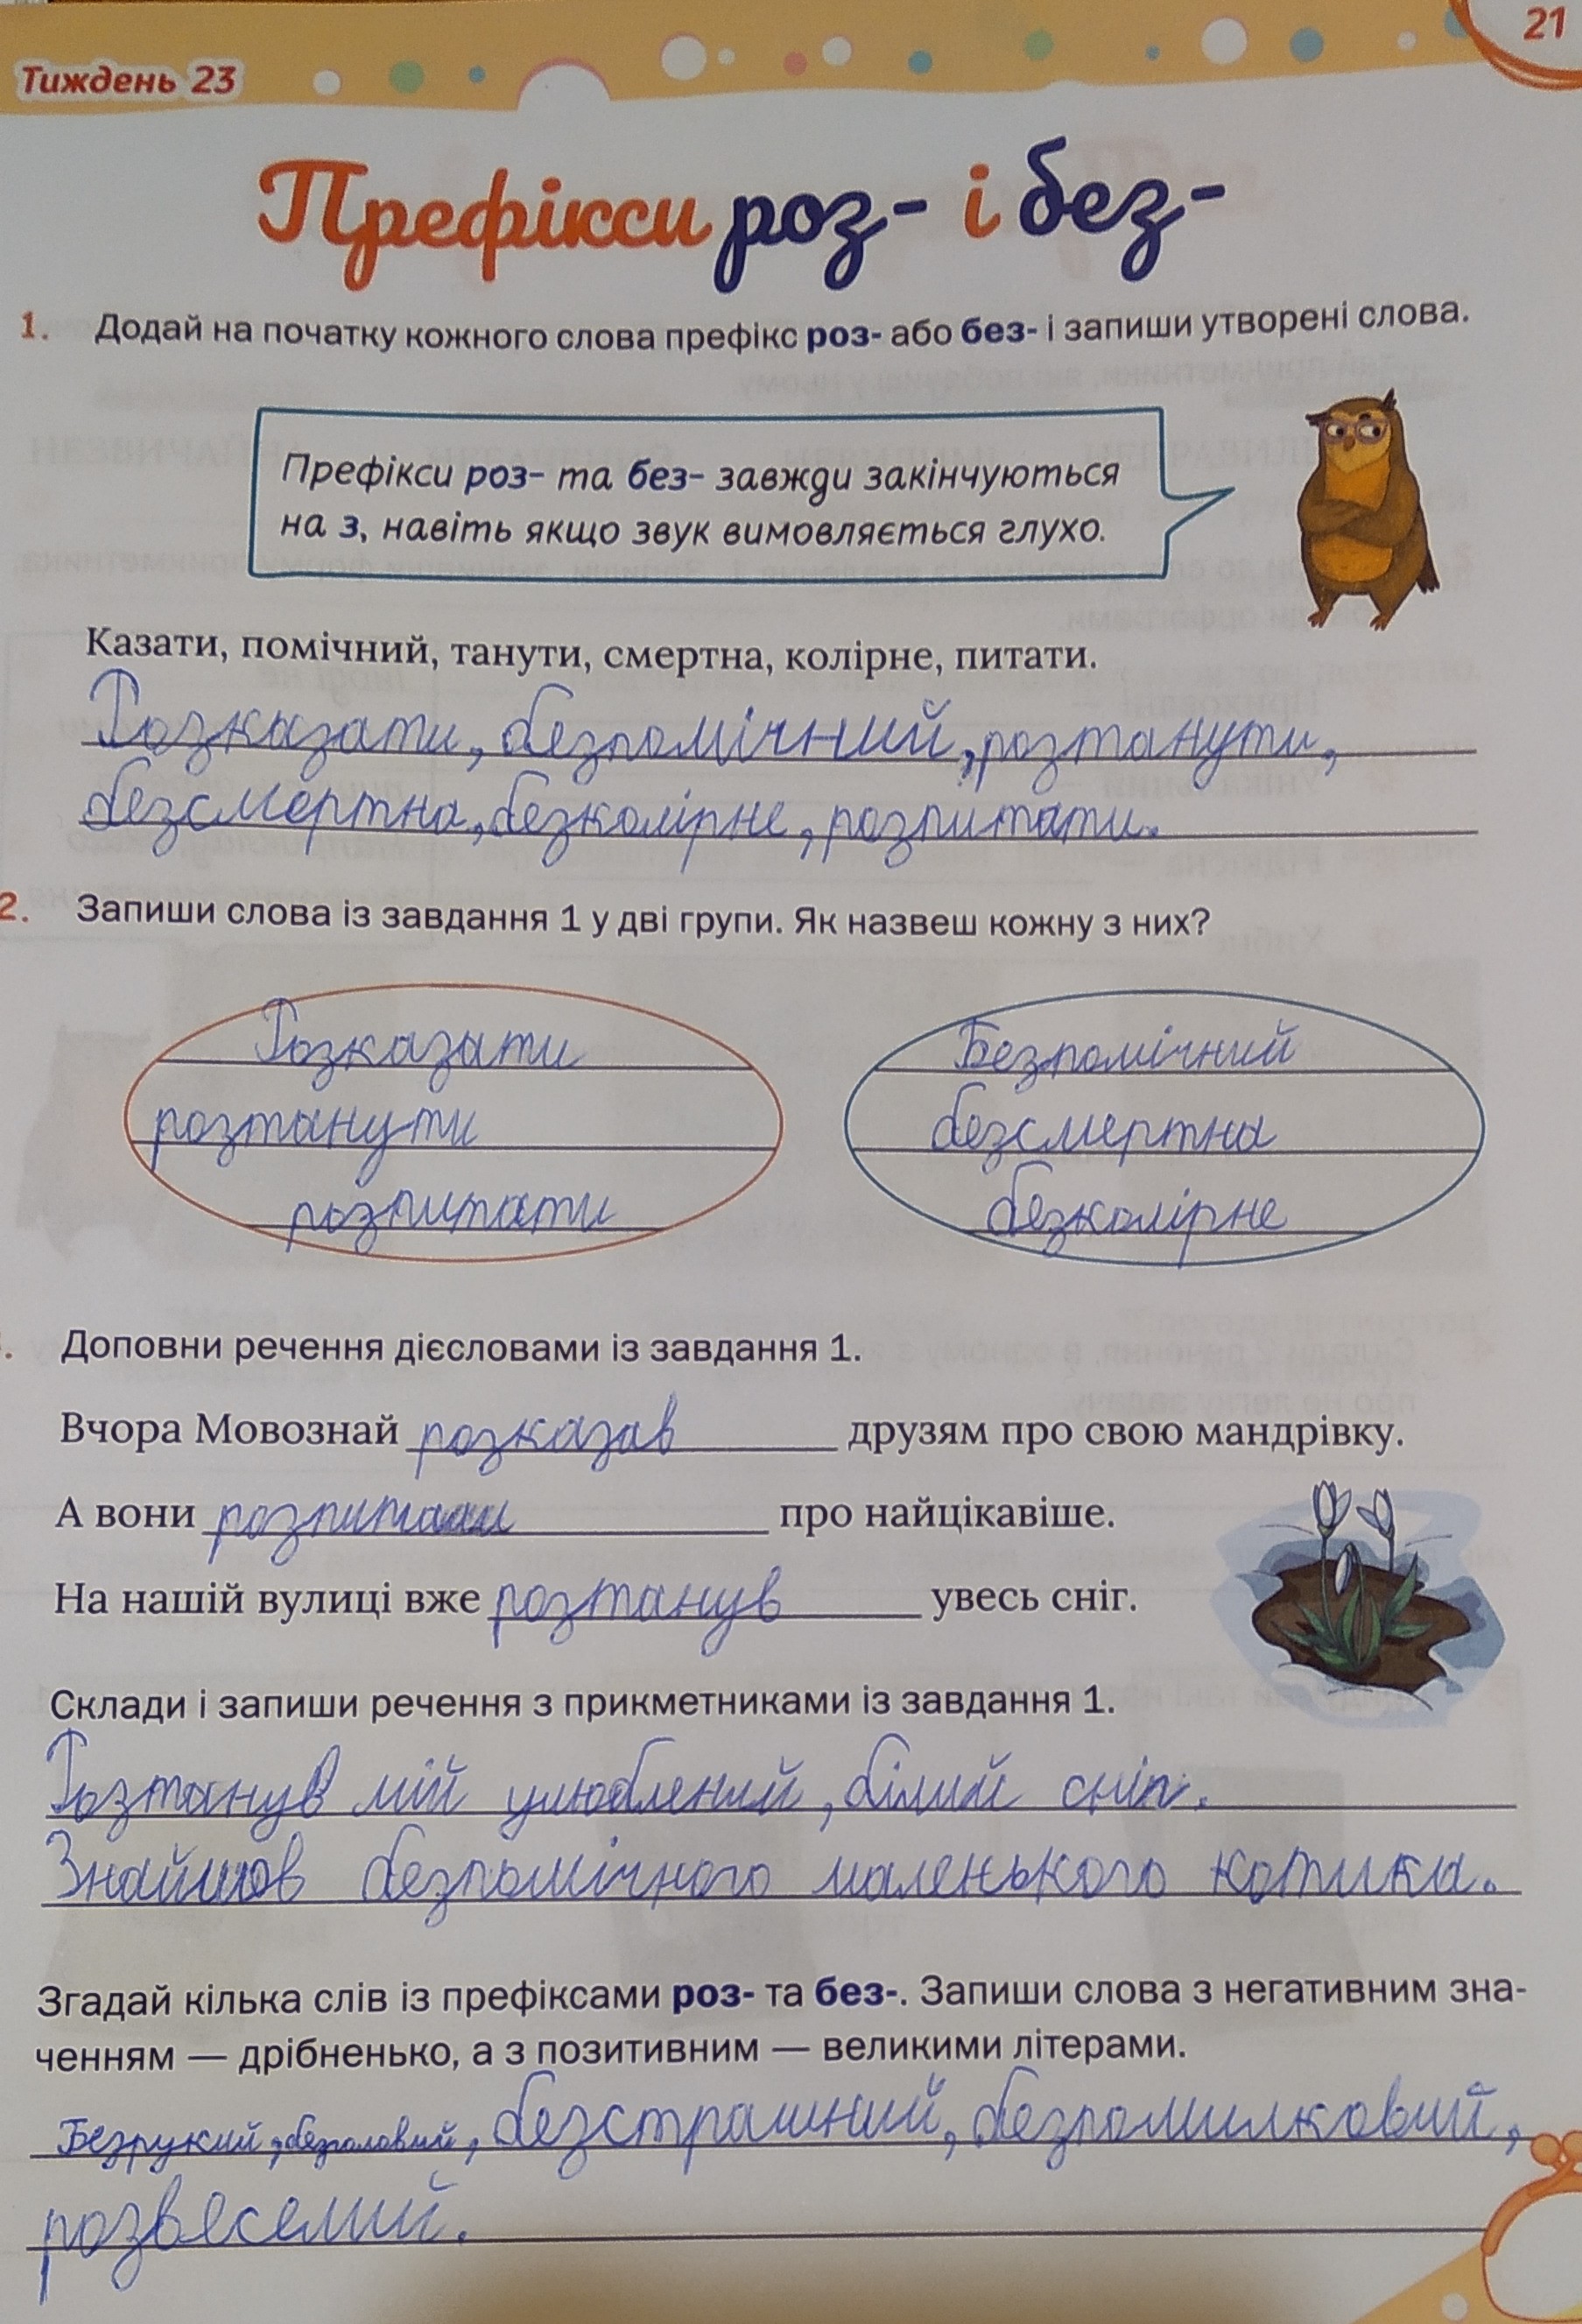 21
Тиждень 23
Префікси роз- і без-
1. Додай на початку кожного слова префікс роз- або без- і запиши утворені слова.
Префікси роз- та без- завжди закінчуються
на з, навіть якщо звук вимовляється глухо.
Казати, помічний, танути, смертна, колірне, питати.
Розказати, безпомічний, розтанути,
безсмертна, безколірне, розпитати.
2. Запиши слова із завдання 1 у дві групи. Як назвеш кожну з них?
Розказати
розтанути
розпитати
Безпомічний
безсмертна
безколірне
. Доповни речення дієсловами із завдання 1.
Вчора Мовознай розказав друзям про свою мандрівку.
А вони розпитали про найцікавіше.
На нашій вулиці вже розтанув увесь сніг.
Склади і запиши речення з прикметниками із завдання 1.
Розтанув мій улюблений, білий сніг.
Знайшов безпомічного маленького котика.
Згадай кілька слів із префіксами роз- та без-. Запиши слова з негативним зна-
ченням — дрібненько, а з позитивним — великими літерами.
Безрукий, безголовий, безстрашний, безпомилковий,
розвеселий.